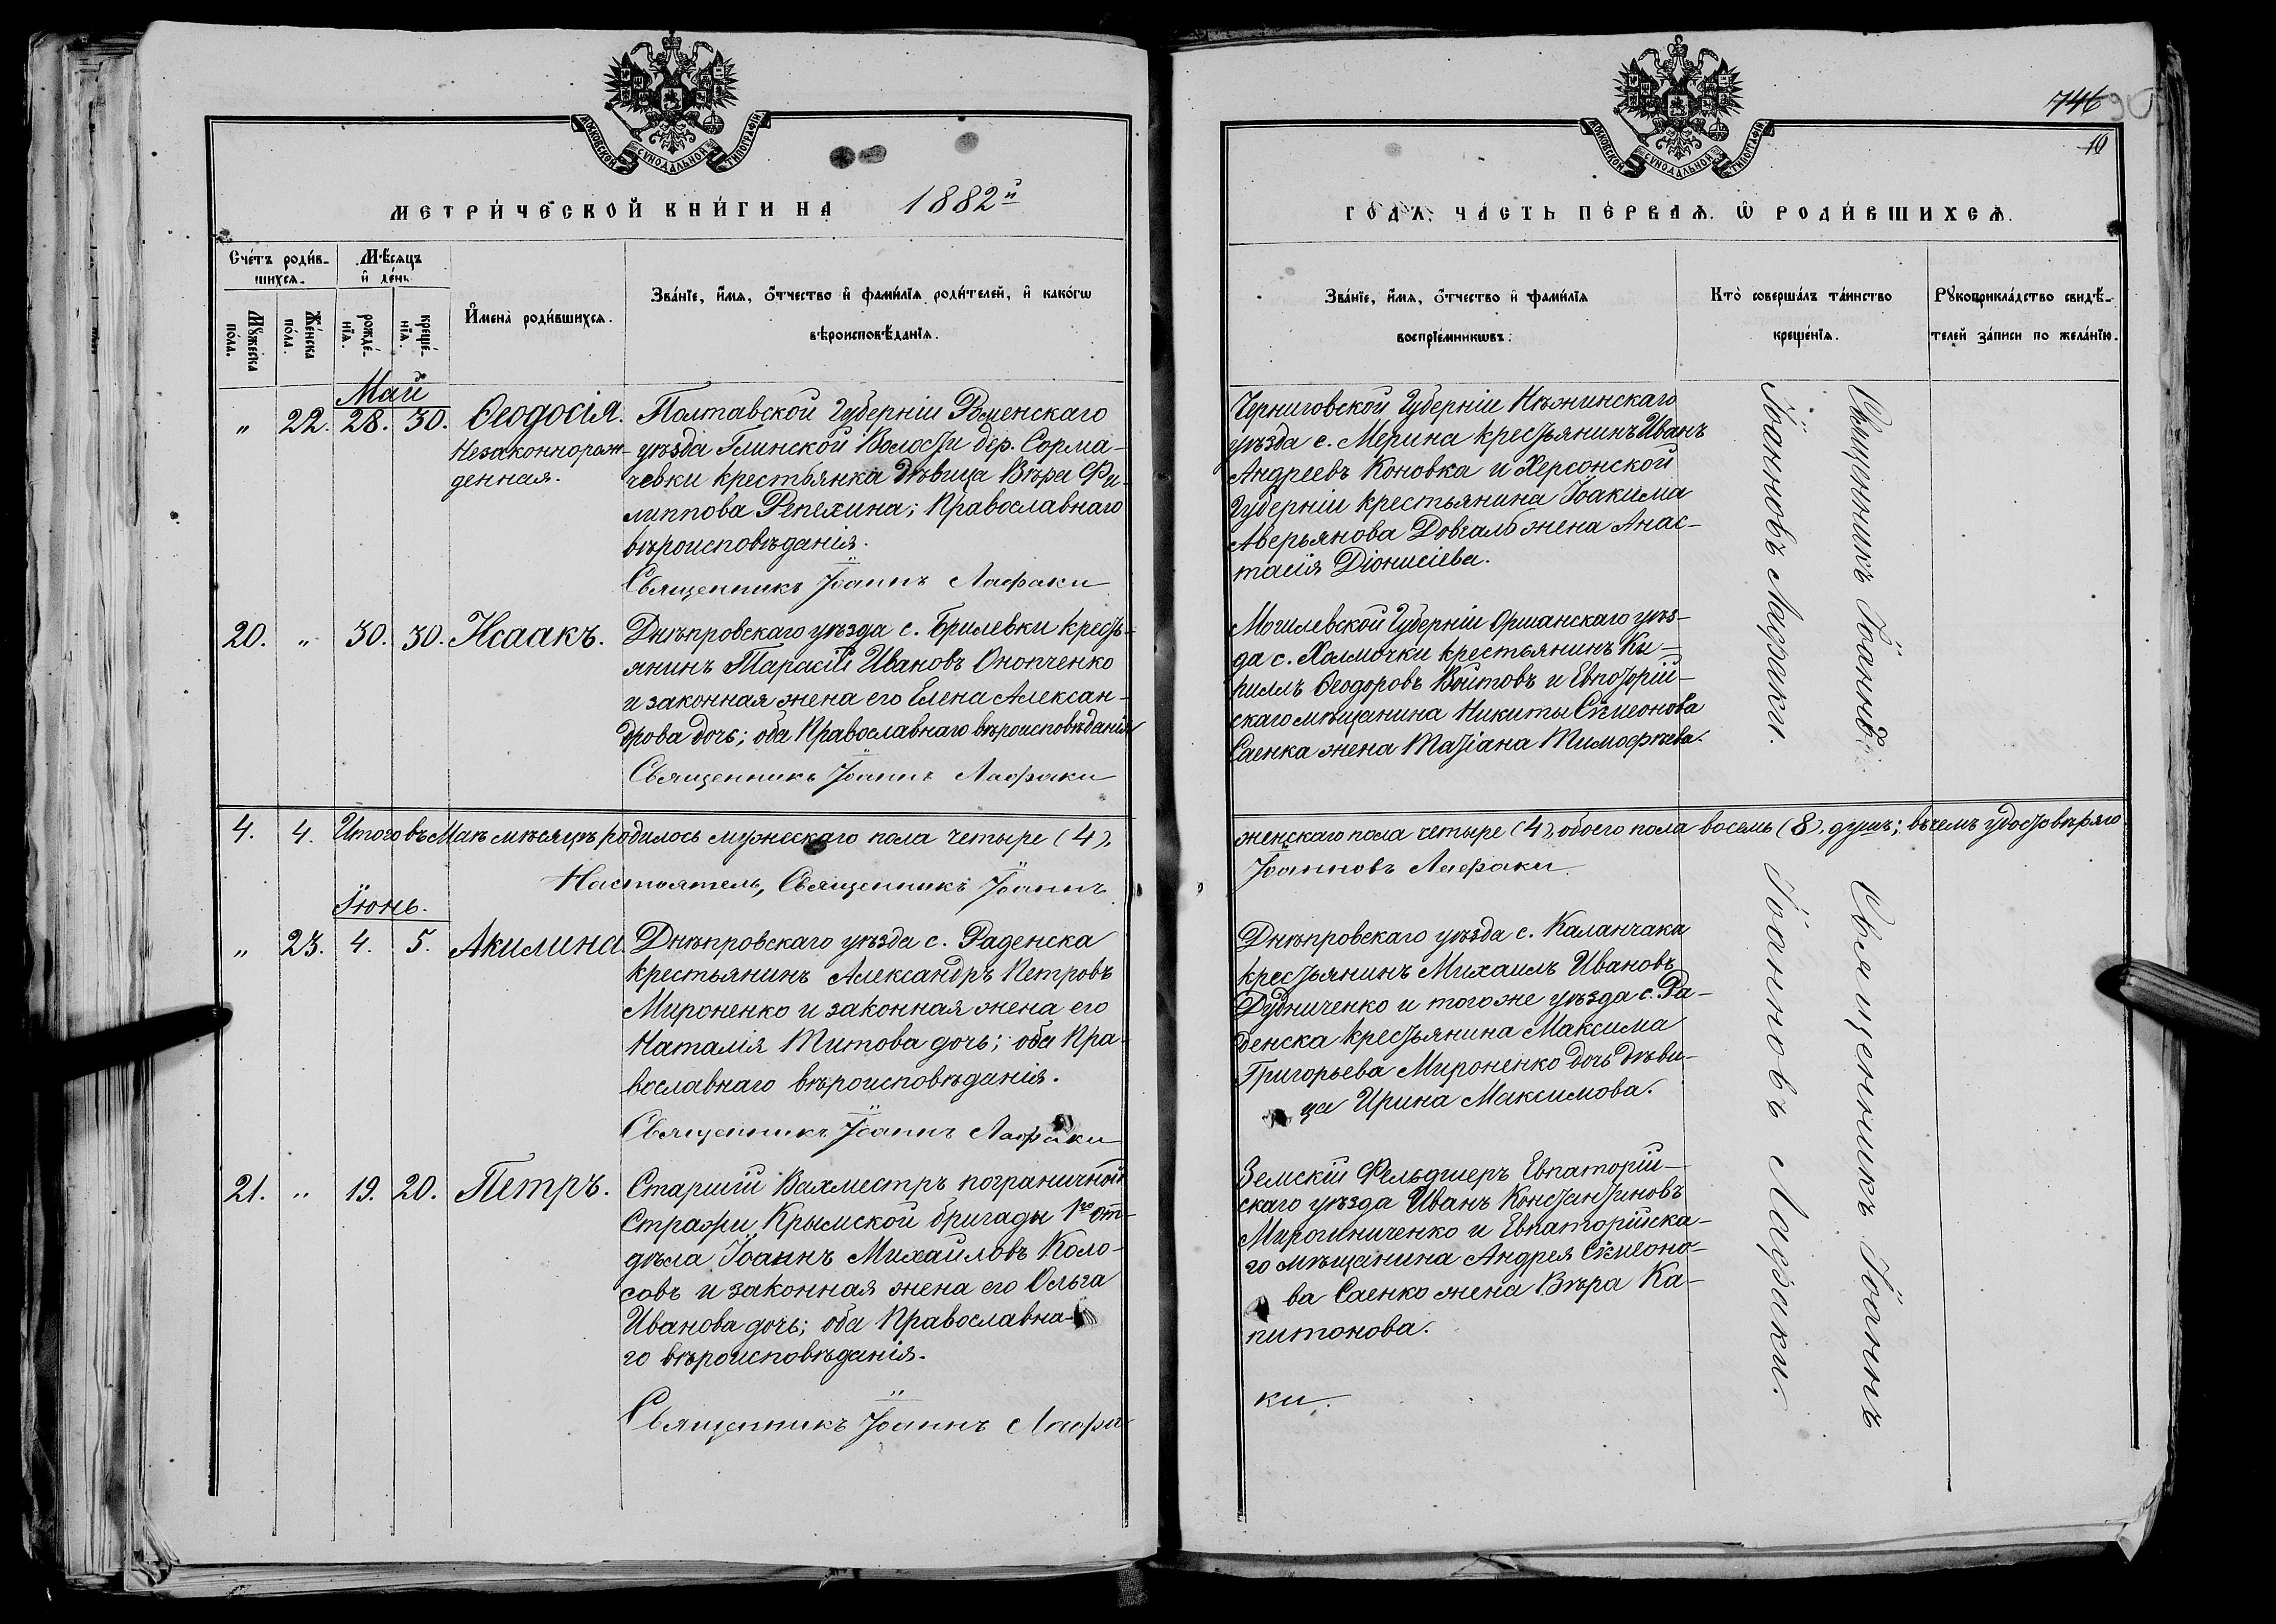 МОСКОВСКОЙ СУНОДАЛЬНОЙ ТИПОГРАФІИ
МЕТРИ́ЧЕСКОЙ КНИ́ГИ НА 1882й
Сче́тъ роди́в-
шихся.
Мѣ́сяцъ
и҆ де́нь
Мꙋ́жеска
по́ла.
Же́нска
по́ла.
рожде́-
нїя.
креще́-
нїя.
И҆мена̀ роди́вшихся.
Зва́нїе, и҆́мя, ѻ҆́тчество и҆ фами́лїя роди́телей, и҆ како́гѡ
вѣроисповѣ́данїя.
Май
" 22. 28. 30. Ѳеодосія.
Незаконнорож-
денная.
Полтавской Губерніи Роменскаго
уѣзда Глинской Волости дер. Сорма-
чевки крестьянка дѣвица Вѣра Фи-
липпова Репехина; Православнаго
вѣроисповѣданія.
Священникъ Іоаннъ Лафаки
20. " 30. 30. Исаакъ.
Днѣпровскаго уѣзда с. Брилевки кресть-
янинъ Тарасій Ивановъ Онопченко
и законная жена его Елена Алексан-
дрова дочь; оба Православнаго вѣроисповѣданія
Священникъ Іоаннъ Лафаки
4. 4. Итого въ Маѣ мѣсяцѣ родилось мужескаго пола четыре (4),
Настоятель, Священникъ Іоаннъ
Іюнь.
" 23. 4. 5. Акилина.
Днѣпровскаго уѣзда с. Раденска
крестьянинъ Александръ Петровъ
Мироненко и законная жена его
Наталія Титова дочь; оба Пра-
вославнаго вѣроисповѣданія.
Священникъ Іоаннъ Лафаки
21. " 19. 20. Петръ.
Старшій Вахмистръ пограничной
Стражи Крымской бригады 1го от-
дѣла Іоаннъ Михайловъ Коло-
совъ и законная жена его Ольга
Иванова дочь; оба Православна-
го вѣроисповѣданія.
Священникъ Іоаннъ Лафа-
746 90
10
МОСКОВСКОЙ СУНОДАЛЬНОЙ ТИПОГРАФІИ
ГО́ДЪ, ЧА́СТЬ ПЕ́РВАЯ. Ѡ҆ РОДИ́ВШИХСЯ.
Зва́нїе, и҆́мя, ѻ҆́тчество и҆ фами́лїя
воспрїе́мникѡвъ.
Кто̀ соверша́лъ та́инство
креще́нїя.
Рꙋкоприкла́дство свидѣ́-
телей за́писи по жела́нїю.
Черниговской Губерніи Нѣжинскаго
уѣзда с. Мерина крестьянинъ Иванъ
Андреевъ Коновка и Херсонской
Губерніи крестьянина Іоакима
Аверьянова Довгаль жена Анас-
тасія Діонисіева.
Могилевской Губерніи Оршанскаго уѣз-
да с. Холмочки крестьянинъ Ки-
риллъ Ѳеодоровъ Войтовъ и Евпаторій-
скаго мѣщанина Никиты Сѵмеонова
Саенка жена Татіана Тимофѣева.
Священникъ Іоаннъ
Іоанновъ Лафаки.
женскаго пола четыре (4), обоего пола восемь (8), душъ; въ чемъ удостовѣряю
Іоанновъ Лафаки.
Днѣпровскаго уѣзда с. Каланчака
крестьянинъ Михаилъ Ивановъ
Дудниченко и того же уѣзда с. Ра-
денска крестьянина Максима
Григорьева Мироненко дочь дѣви-
ца Ирина Максимова.
Земскій Фельдшеръ Евпаторій-
скаго уѣзда Иванъ Константиновъ
Мирошниченко и Евпаторійска-
го мѣщанина Андрея Сѵмеоно-
ва Саенко жена Вѣра Ка-
питонова.
ки.
Священникъ Іоаннъ
Іоанновъ Лафаки.